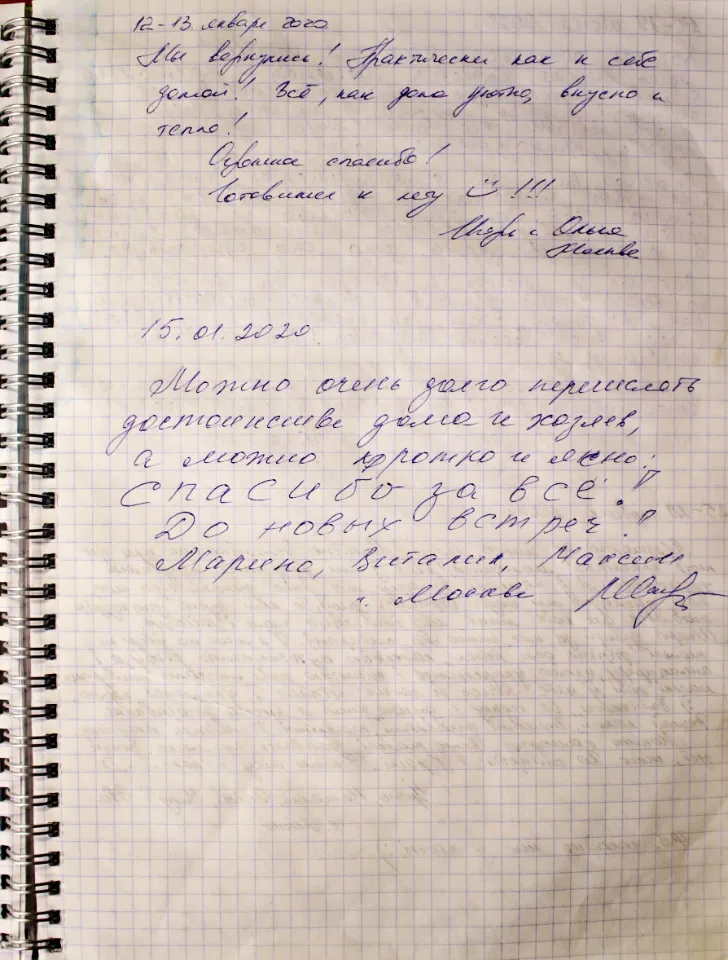 12-13 января 2020
Мы вернулись! Практически как к себе
домой! Всё, как дома уютно, вкусно и
тепло!
Огромное спасибо!
Готовимся к лету !!!
Игорь и Ольга
Москва
15.01.2020.
Можно очень долго перечислять
достоинства дома и хозяев,
а можно кротко и ясно:
СПАСИБО за всё!
До новых встреч!
Марина, Виталий, Максим
г. Москва